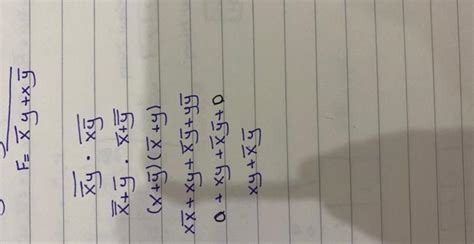 F = \overline{\overline{x}y + x\overline{y}}
\overline{\overline{x}y} · \overline{x\overline{y}}
\overline{\overline{x}} + \overline{y} · \overline{x} + \overline{\overline{y}}
(x + \overline{y})(\overline{x} + y)
x\overline{x} + xy + \overline{x}\overline{y} + y\overline{y}
0 + xy + \overline{x}\overline{y} + 0
xy + \overline{x}\overline{y}